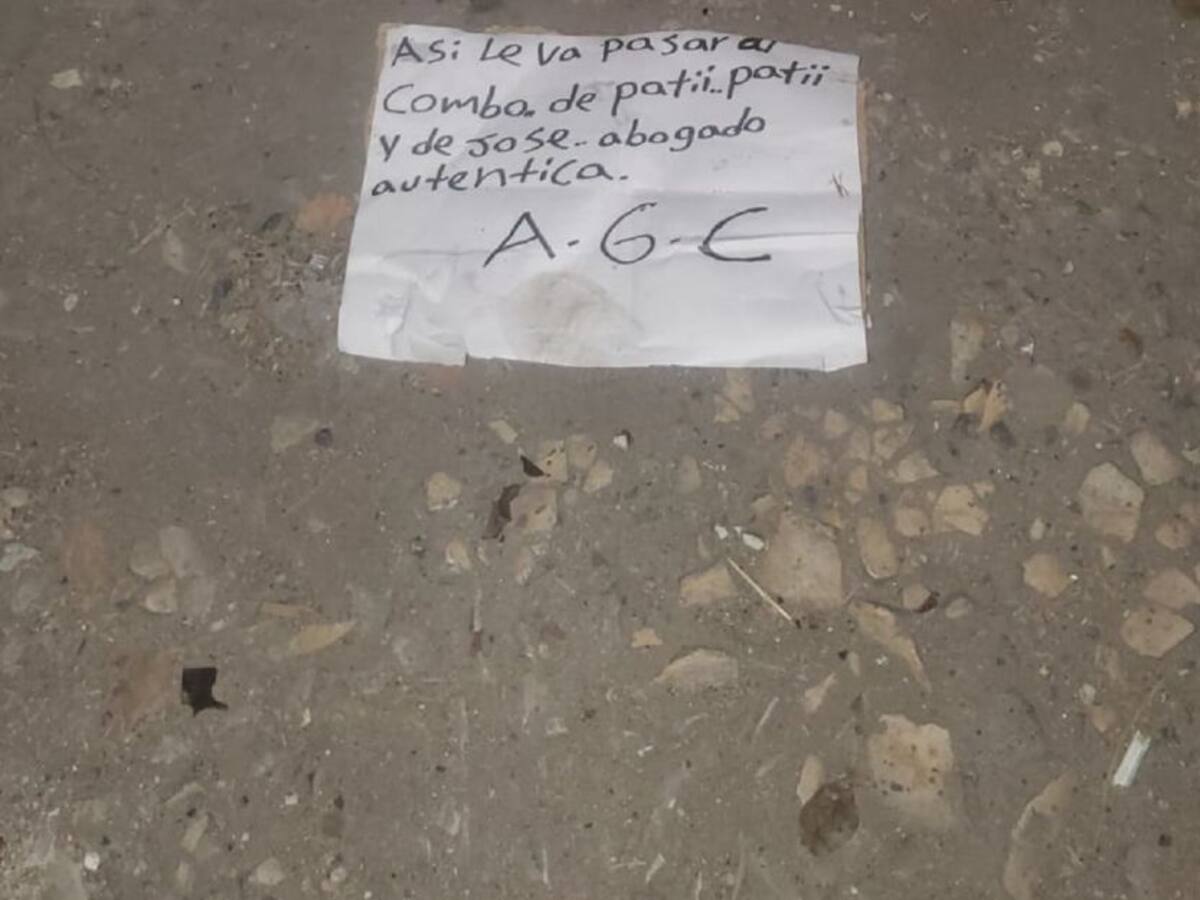 Asi Le va pasar a
Combo. de patii.. patii
y de Jose.. abogado
autentica.
A.G.C